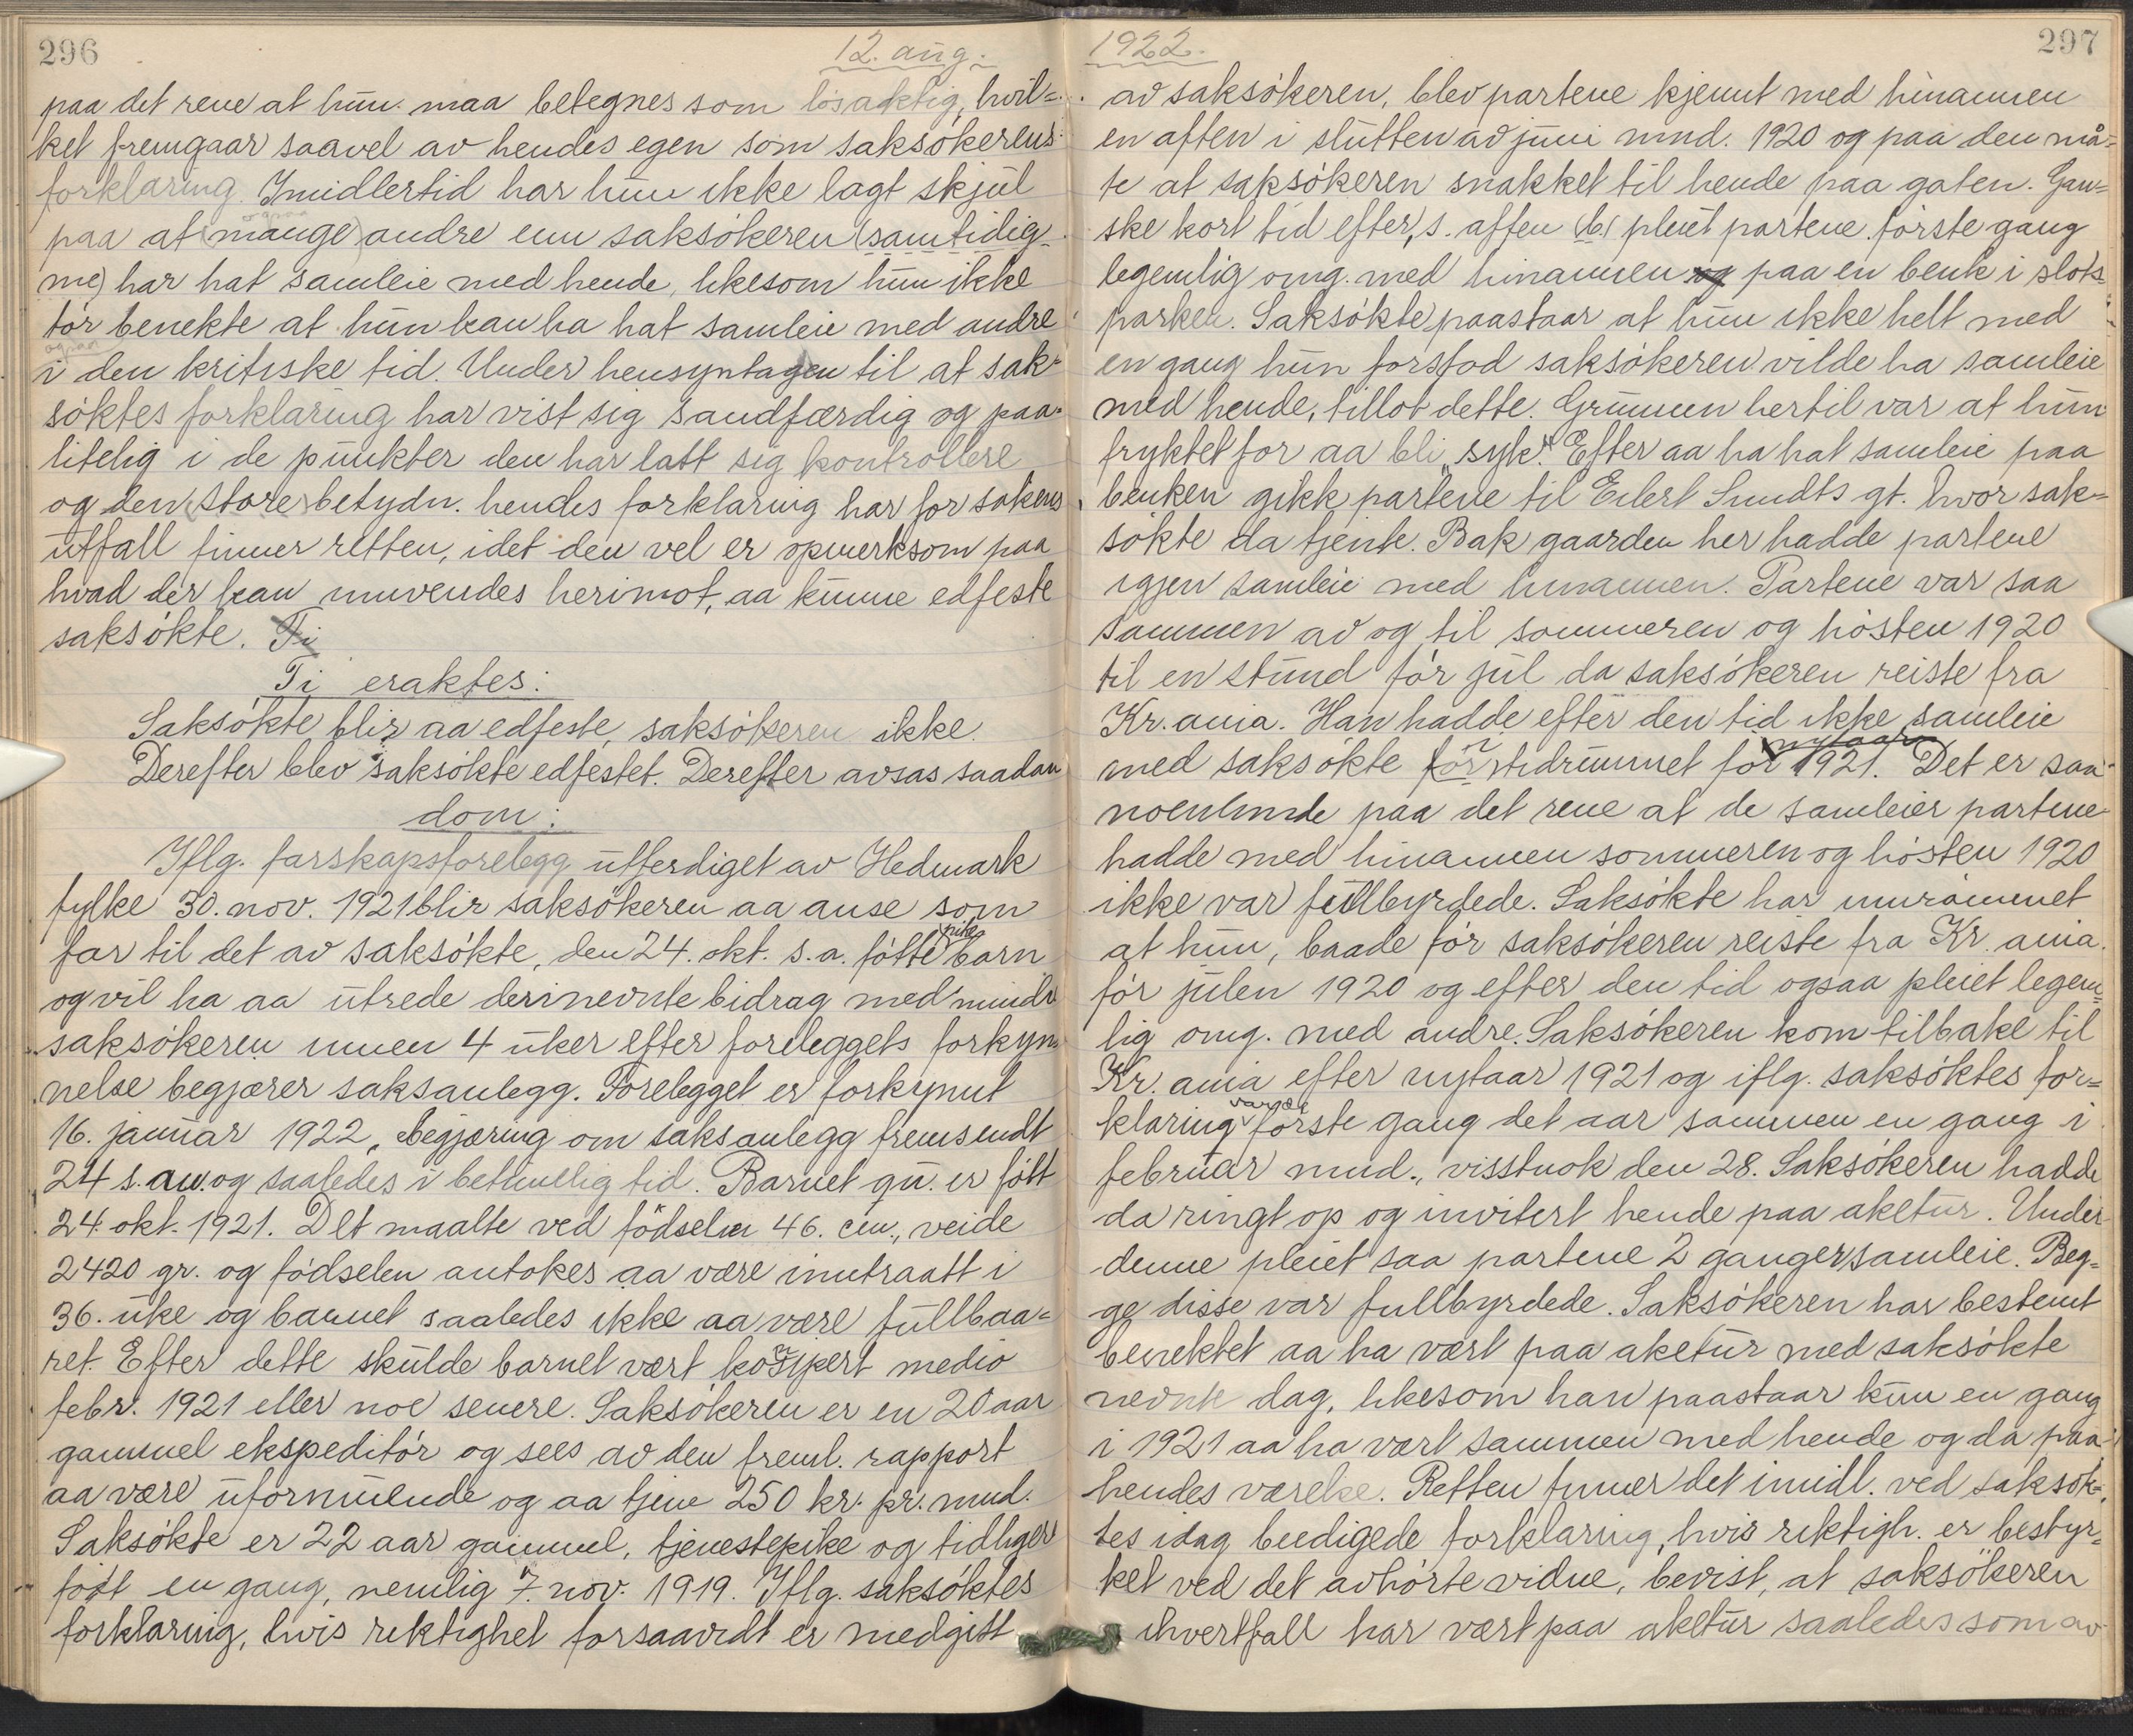 296
12. aug.
paa det rene at hun maa betegnes som løsaktig, hvil=
ket fremgaar saavel av hendes egen som saksøkerens
forklaring. Imidlertid har hun ikke lagt skjul
ogsaa
paa at (mange) andre enn saksøkeren (samtidig
me) har hat samleie med hende, likesom hun ikke
tør benekte at hun kan ha hat samleie med andre
ogsaa
i den kritiske tid. Under hensyntagen til at sak-
søktes forklaring har vist sig sandfærdig og paa-
litelig i de punkter den har latt sig kontrollere
og den store betydn. hendes forklaring har for sakens
utfall finner retten, idet den vel er opmerksom paa
hvad der kan innvendes herimot, aa kunne edfeste
saksøkte. Ti
Ti eraktes:
Saksøkte blir aa edfeste, saksøkeren ikke.
Derefter blev saksøkte edfestet. Derefter avsas saadan
dom:
Iflg. farskapsforelegg utferdiget av Hedmark
fylke 30. nov. 1921 blir saksøkeren aa anse som
pike
far til det av saksøkte, den 24. okt. s.a. føtte barn
og vil ha aa utrede derinevnte bidrag med mindre
saksøkeren innen 4 uker efter foreleggets forkyn=
nelse begjærer saksanlegg. Forelegget er forkynnt
16. januar 1922, begjæring om saksanlegg fremsendt
24 s.m. og saaledes i betimelig tid. Barnet qu. er født
24. okt. 1921. Det maalte ved fødselen 46. cm., veide
2420 gr. og fødselen antokes aa være inntraatt i
36. uke og barnet saaledes ikke aa være fullbaa=
ret. Efter dette skulde barnet vært konsipert medio
febr. 1921 eller noe senere. Saksøkeren er en 20 aar
gammel ekspeditør og sees av den freml. rapport
aa være uformuende og aa tjene 250 kr. pr. mnd.
Saksøkte er 22 aar gammel, tjenestepike og tidligere
født en gang, nemlig 7. nov. 1919. Iflg. saksøktes
forklaring, hvis riktighet forsaavidt er medgitt
1922.
297
av saksøkeren, blev partene kjennt med hinannen
en aften i slutten av juni mnd. 1920 og paa den må=
te at saksøkeren snakket til hende paa gaten. Gan=
ske kort tid efter, s. aften pleiet partene første gang
legemlig omg. med hinannen og paa en benk i slots=
parken. Saksøkte paastaar at hun ikke helt med
en gang hun forstod saksøkeren vilde ha samleie
med hende, tillot dette. Grunnen hertil var at hun
fryktet for aa bli "syk". Efter aa ha hat samleie paa
benken gikk partene til Eilert Sundts gt. hvor sak=
søkte da tjente. Bak gaarden her hadde partene
igjen samleie med hinannen. Partene var saa
sammen av og til sommeren og høsten 1920
til en stund før jul da saksøkeren reiste fra
Kr.ania. Han hadde efter den tid ikke samleie
nytaar
med saksøkte før i tidrummet før 1921. Det er saa
noenlunde paa det rene at de samleier partene
hadde med hinannen sommeren og høsten 1920
ikke var fullbyrdede. Saksøkte har innrømmet
at hun, baade før saksøkeren reiste fra Kr.ania
før julen 1920 og efter den tid ogsaa pleiet legem=
lig omg. med andre. Saksøkeren kom tilbake til
Kr.ania efter nytaar 1921 og iflg. saksøktes for=
var de
klaring første gang det aar sammen en gang i
februar mnd., visstnok den 28. Saksøkeren hadde
da ringt op og invitert hende paa aketur. Under
denne pleiet saa partene 2 ganger samleie. Beg=
ge disse var fullbyrdede. Saksøkeren har bestemt
benektet aa ha vært paa aketur med saksøkte
nevnte dag, likesom han paastaar kun en gang
i 1921 aa ha vært sammen med hende og da paa
hendes værelse. Retten finner det imidl. ved saksøk=
tes idag beedigede forklaring, hvis riktigh. er bestyr=
ket ved det avhørte vidne, bevist, at saksøkeren
ihvertfall har vært paa aketur saaledes som av